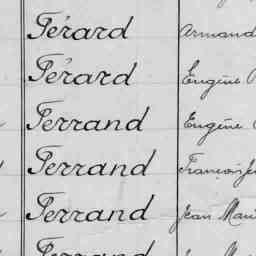 Férard Armand
Férard Eugène
Ferrand Eugène
Ferrand François
Ferrand Jean Mari
Ferrand